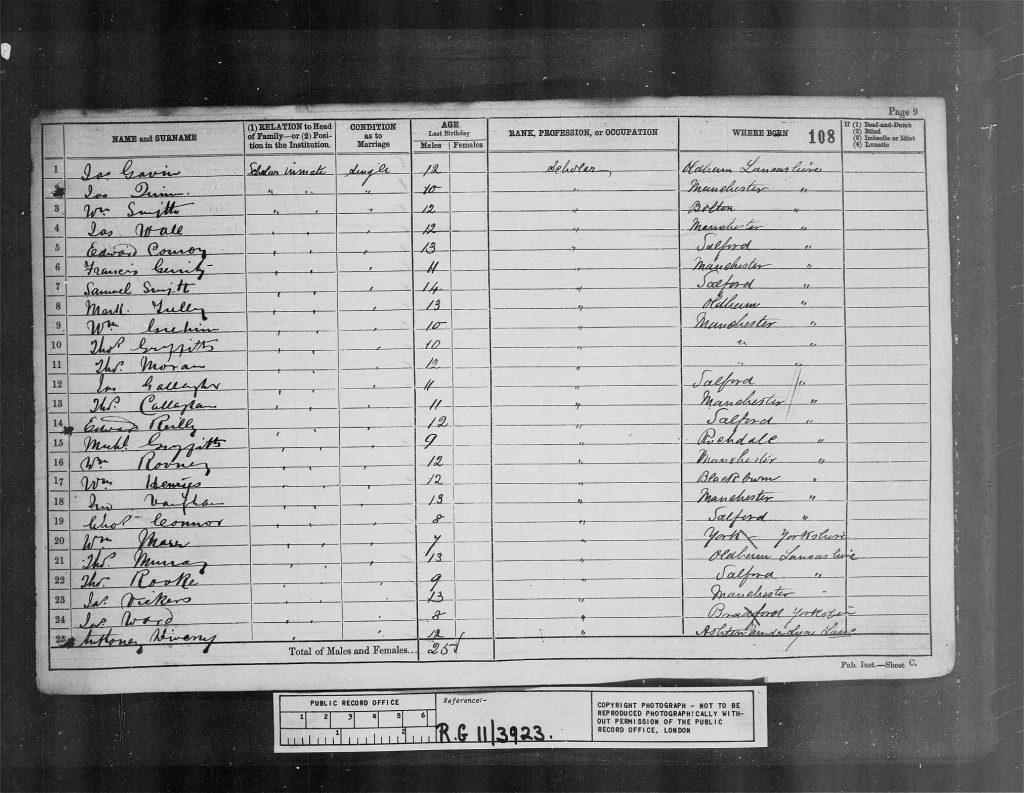 Page 9
NAME and SURNAME (1) RELATION to Head of Family—or (2) Position in the Institution. CONDITION as to Marriage AGE Last Birthday Males Females RANK, PROFESSION, or OCCUPATION WHERE BORN 108 If (1) Deaf-and-Dumb (2) Blind (3) Imbecile or Idiot (4) Lunatic
1 Jas Gavin Scholar inmate Single 12 Scholar Oldham Lancashire
2 Jas " " " 10 " Manchester "
3 Wm " " " 12 " Bolton "
4 Jas Wall " " " 12 " Manchester "
5 Edward Conroy " " " 13 " Salford "
6 Francis " " " 11 " Manchester "
7 Samuel " " " 14 " Salford "
8 Mark " " " 13 " Oldham "
9 Wm " " " 10 " Manchester "
10 Thos Griffiths " " " 10 " " "
11 Thos Moran " " " 12 " "
12 Jas Gallagher " " " 11 " Salford "
13 Thos Callaghan " " " 11 " Manchester "
14 Edward Reilly " " " 12 " Salford "
15 Michl Griffiths " " " 9 " Rochdale "
16 Wm Rooney " " " 12 " Manchester "
17 Wm " " " 12 " Blackburn "
18 Jno Vaughan " " " 13 " Manchester "
19 Chas Connor " " " 8 " Salford "
20 Wm " " " 7 " York Yorkshire
21 Thos Murray " " " 13 " Oldham Lancashire
22 Thos Rooke " " " 9 " Salford "
23 Jas Vickers " " " 13 " Manchester "
24 Jas Ward " " " 8 " Bradford
25 " " 12 " Ashton under Lyne Lanc
Total of Males and Females... 25
Pub. Inst.—Sheet C.
PUBLIC RECORD OFFICE
1 2 3 4 5 6
1 2
Reference:-
R.G 11/3923.
COPYRIGHT PHOTOGRAPH - NOT TO BE
REPRODUCED PHOTOGRAPHICALLY WITH-
OUT PERMISSION OF THE PUBLIC
RECORD OFFICE, LONDON